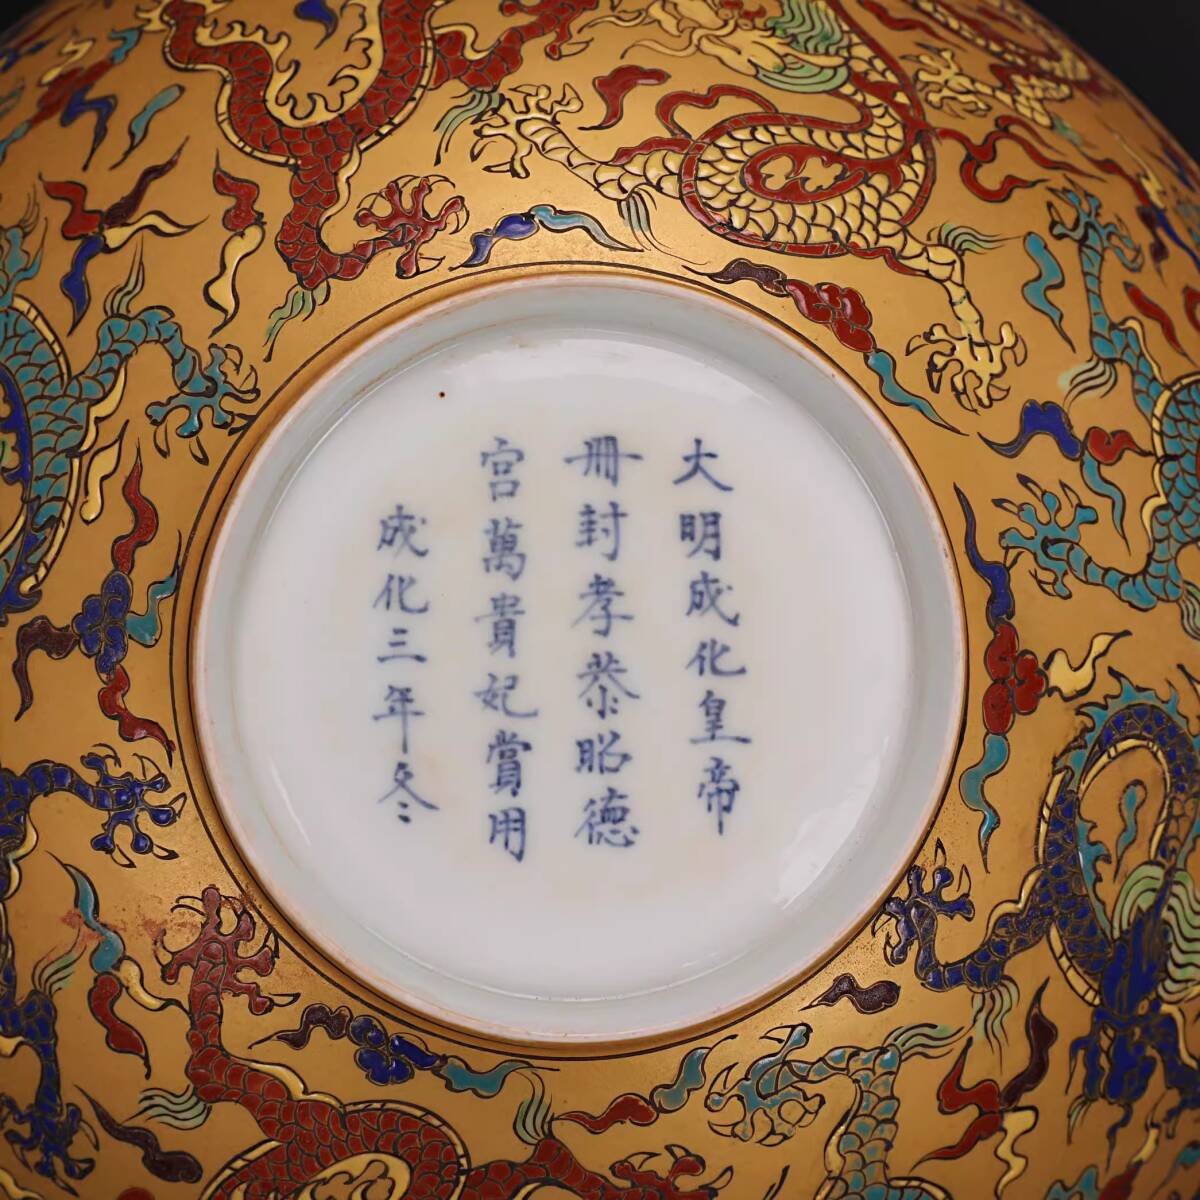 大明成化皇帝
冊封孝恭昭德
宮萬貴妃賞用
成化三年冬